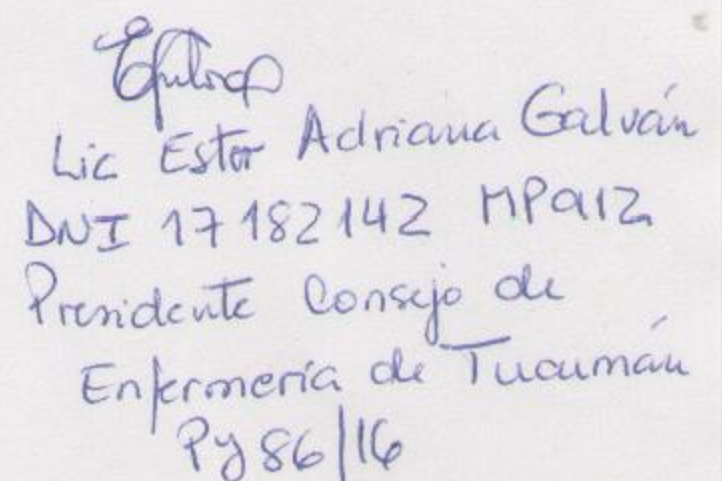 Lic Ester Adriana Galván
DNI 17 182 142 MP912
Presidente Consejo de
Enfermería de Tucumán
Py 86/16